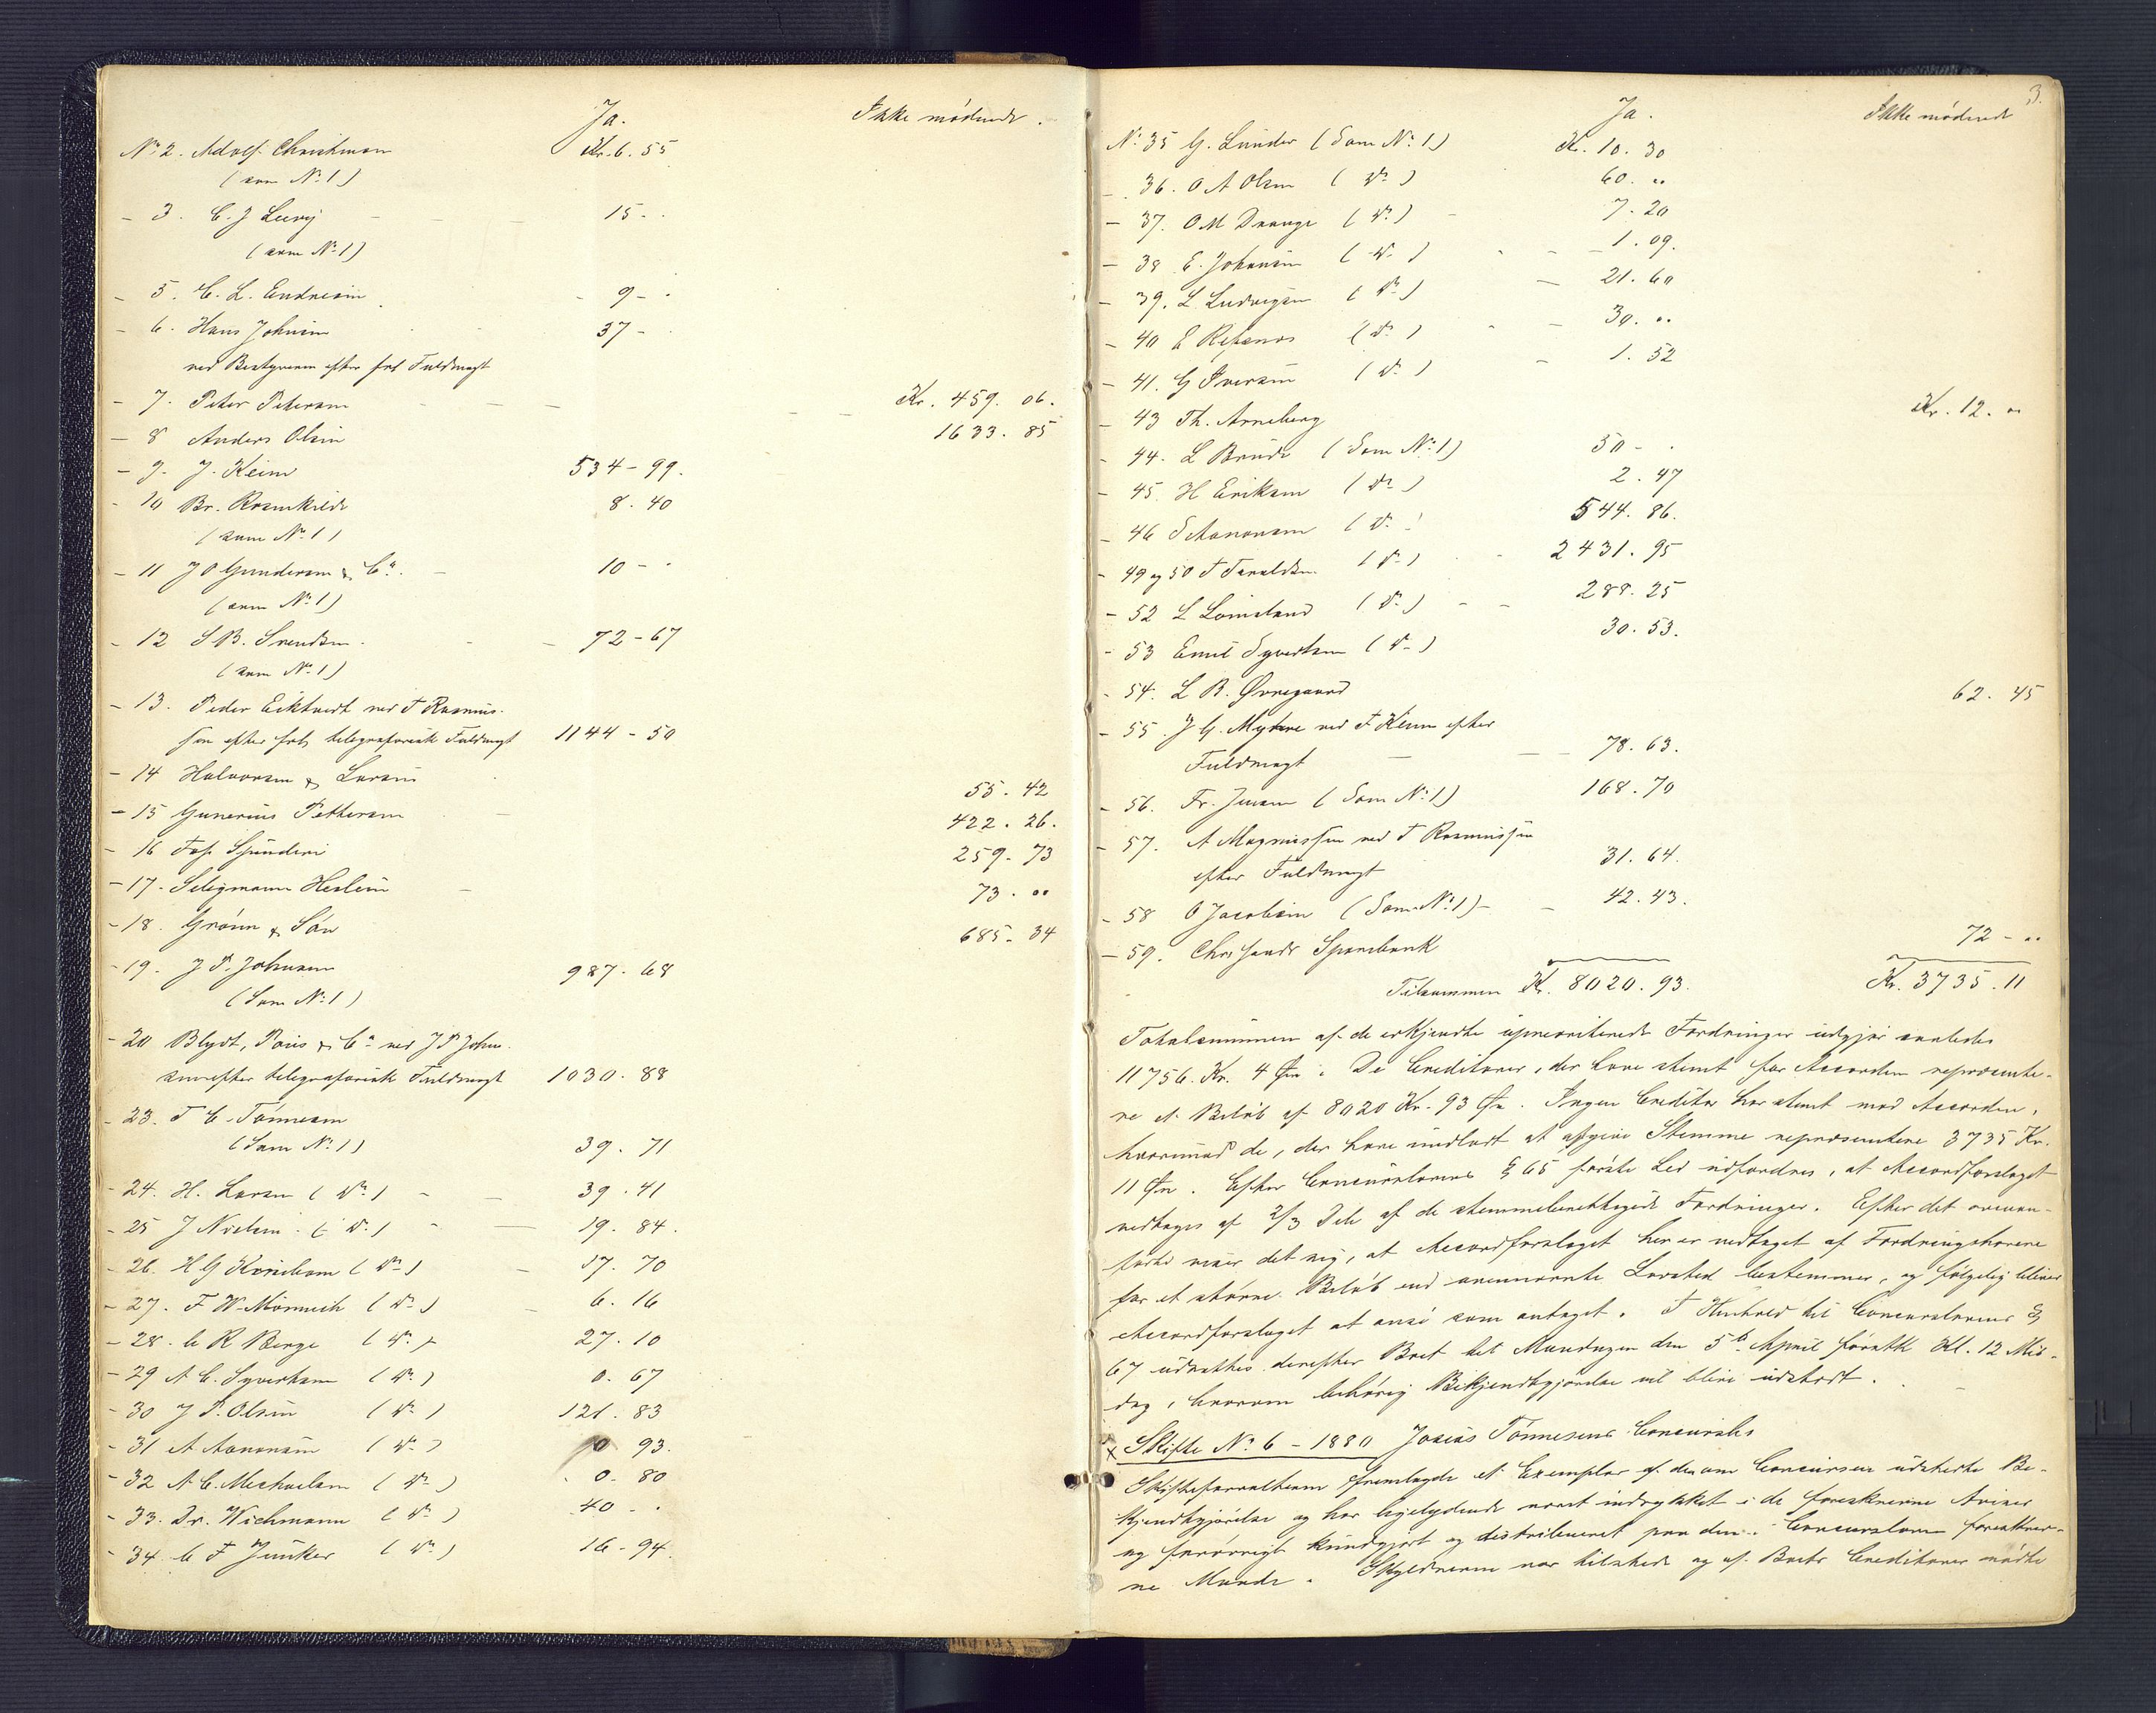 Ja. Ikke mødende.
No 2. Adolf Christensen Kr. 6. 55
(som No 1)
- 3. C. J Levij 15 - .
(som No 1)
- 5. C. L. Endresen 9 - .
- 6. Hans Johnsen 37 - .
ved Bestyreren efter frl Fuldmagt
- 7. Peter Petersen Kr. 459. 06.
- 8 Anders Olsen 1633. 85
- 9. J. Keim 534 - 99.
- 10 Br. Rosenkilde 8. 40
(som No 1)
- 11 J O Gundersen & Co. 10 - .
(som No 1)
- 12 S B. Svendsen 72 - 67
(som No 1)
- 13. Peder Ecktvedt ved F Rasmus-
sen efter frl telegrafarisk Fuldmagt 1144 - 50
- 14 Halvorsen & Larsen 55. 42
- 15 Gunerius Pettersen 422. 26.
- 16 Joh. 259. 73
- 17. Seligmann Heslein 73. ..
- 18. Grönn & Sön 685. 34
- 19. J P. Johnsen 987. 68
(Som No 1)
- 20 Blydt, Pris & Co ved J P John-
sen efter telegrafarisk Fuldmagt 1030. 88
- 23. T C. Tönnesen
(Som No 1) 39. 71
- 24. H. Larsen (Do) 39. 41
- 25 J Nielsen (Do) 19. 84.
- 26. H G (Do) 17. 70
- 27. F W. Mönnich (Do) 6. 16
- 28. C R Berge (Do) 27. 10
- 29 A C. Syvertsen (Do) 0. 67
- 30 J P. Olsen (Do) 121. 83
- 31 A Aanonsen (Do) 0 93.
- 32 A C. Michaelsen (Do) 0. 80
- 33. Dr. Wichmann (Do) 40 - .
- 34 C F Junker (Do) 16 - 94.
3.
Ja. Ikke mødende
No 35 G. Lunder (Som No 1) Kr. 10. 30
- 36. O A Olsen (Do) 60. ..
- 37. O M Drange (Do) 7. 20
- 38 E. Johansen (Do) 1. 09.
- 39. L Ludvigsen (Do) 21. 60
- 40 E Refsnes (Do) 30. ..
- 41. G Iversen (Do) 1. 52
- 43 Th. Arneberg Kr. 12. ..
- 44. L Brude (Som No 1) 50 - .
- 45. H Eriksen (Do) 2. 47
- 46 S Aanonsen (Do) 544. 86.
- 49 og 50 T Taraldsen (Do) 2431. 95
- 52 L Lömsland (Do) 288. 25
- 53 Emil Syvertsen (Do) 30. 53.
- 54. L B. Øvregaard 62. 45
- 55. J G. Myhre ved F Keim efter
Fuldmagt 78. 63.
- 56. Fr. Jensen (Som No 1) 168. 70
- 57. A Magnussen ved F Rasmussen
efter Fuldmagt 31. 64.
- 58 O Jacobsen (Som No 1) 42. 43.
- 59. Chrssands Sparebank 72 - ..
Tilsammen Kr. 8020. 93. Kr. 3735. 11
Totalsummen af de erkjendte upriorterede Fordringer udgjør saaledes
11756. Kr. 4 Øre. De Creditorer, der have stemt for Accorden repræsente-
re et Beløb af 8020 Kr. 93 Øre. Ingen Creditor har stemt mod Accorden,
hvorimod de, der have undladt at afgive Stemme repræsentere 3735 Kr.
11 Øre. Efter Concurslovens § 65 første Led udfordres, at Accordforslaget
vedtages af 2/3 Dele af de stemmeberettigede Fordringer. Efter det ovenan-
førte viser det sig, at Accordforslaget her er vedtaget af Fordringshavere
for et større Beløb end ovennævnte Lovsted bestemmer, og følgelig bliver
Accordforslaget at ansé som antaget. I Henhold til Concurslovens §
67 udsættes derefter Boet til Mandagen den 5te April førstk Kl. 12 Mid-
dag, hvorom behörig Bekjendtgjørelse vil blive udstedt.
x Skifte No 6 - 1880 Josias Tönnesens Concursbo
Skifteforvalteren fremlagde et Exemplar af den om Concursen udstedte Be-
kjendtgjørelse og har ligelydende været indrykket i de foreskrevne Aviser
og forøvrigt kundgjort og distribueret paa den i Concursloven foreskrev-
ne Maade. Skyldneren var tilstede og af Boets Creditorer mødte